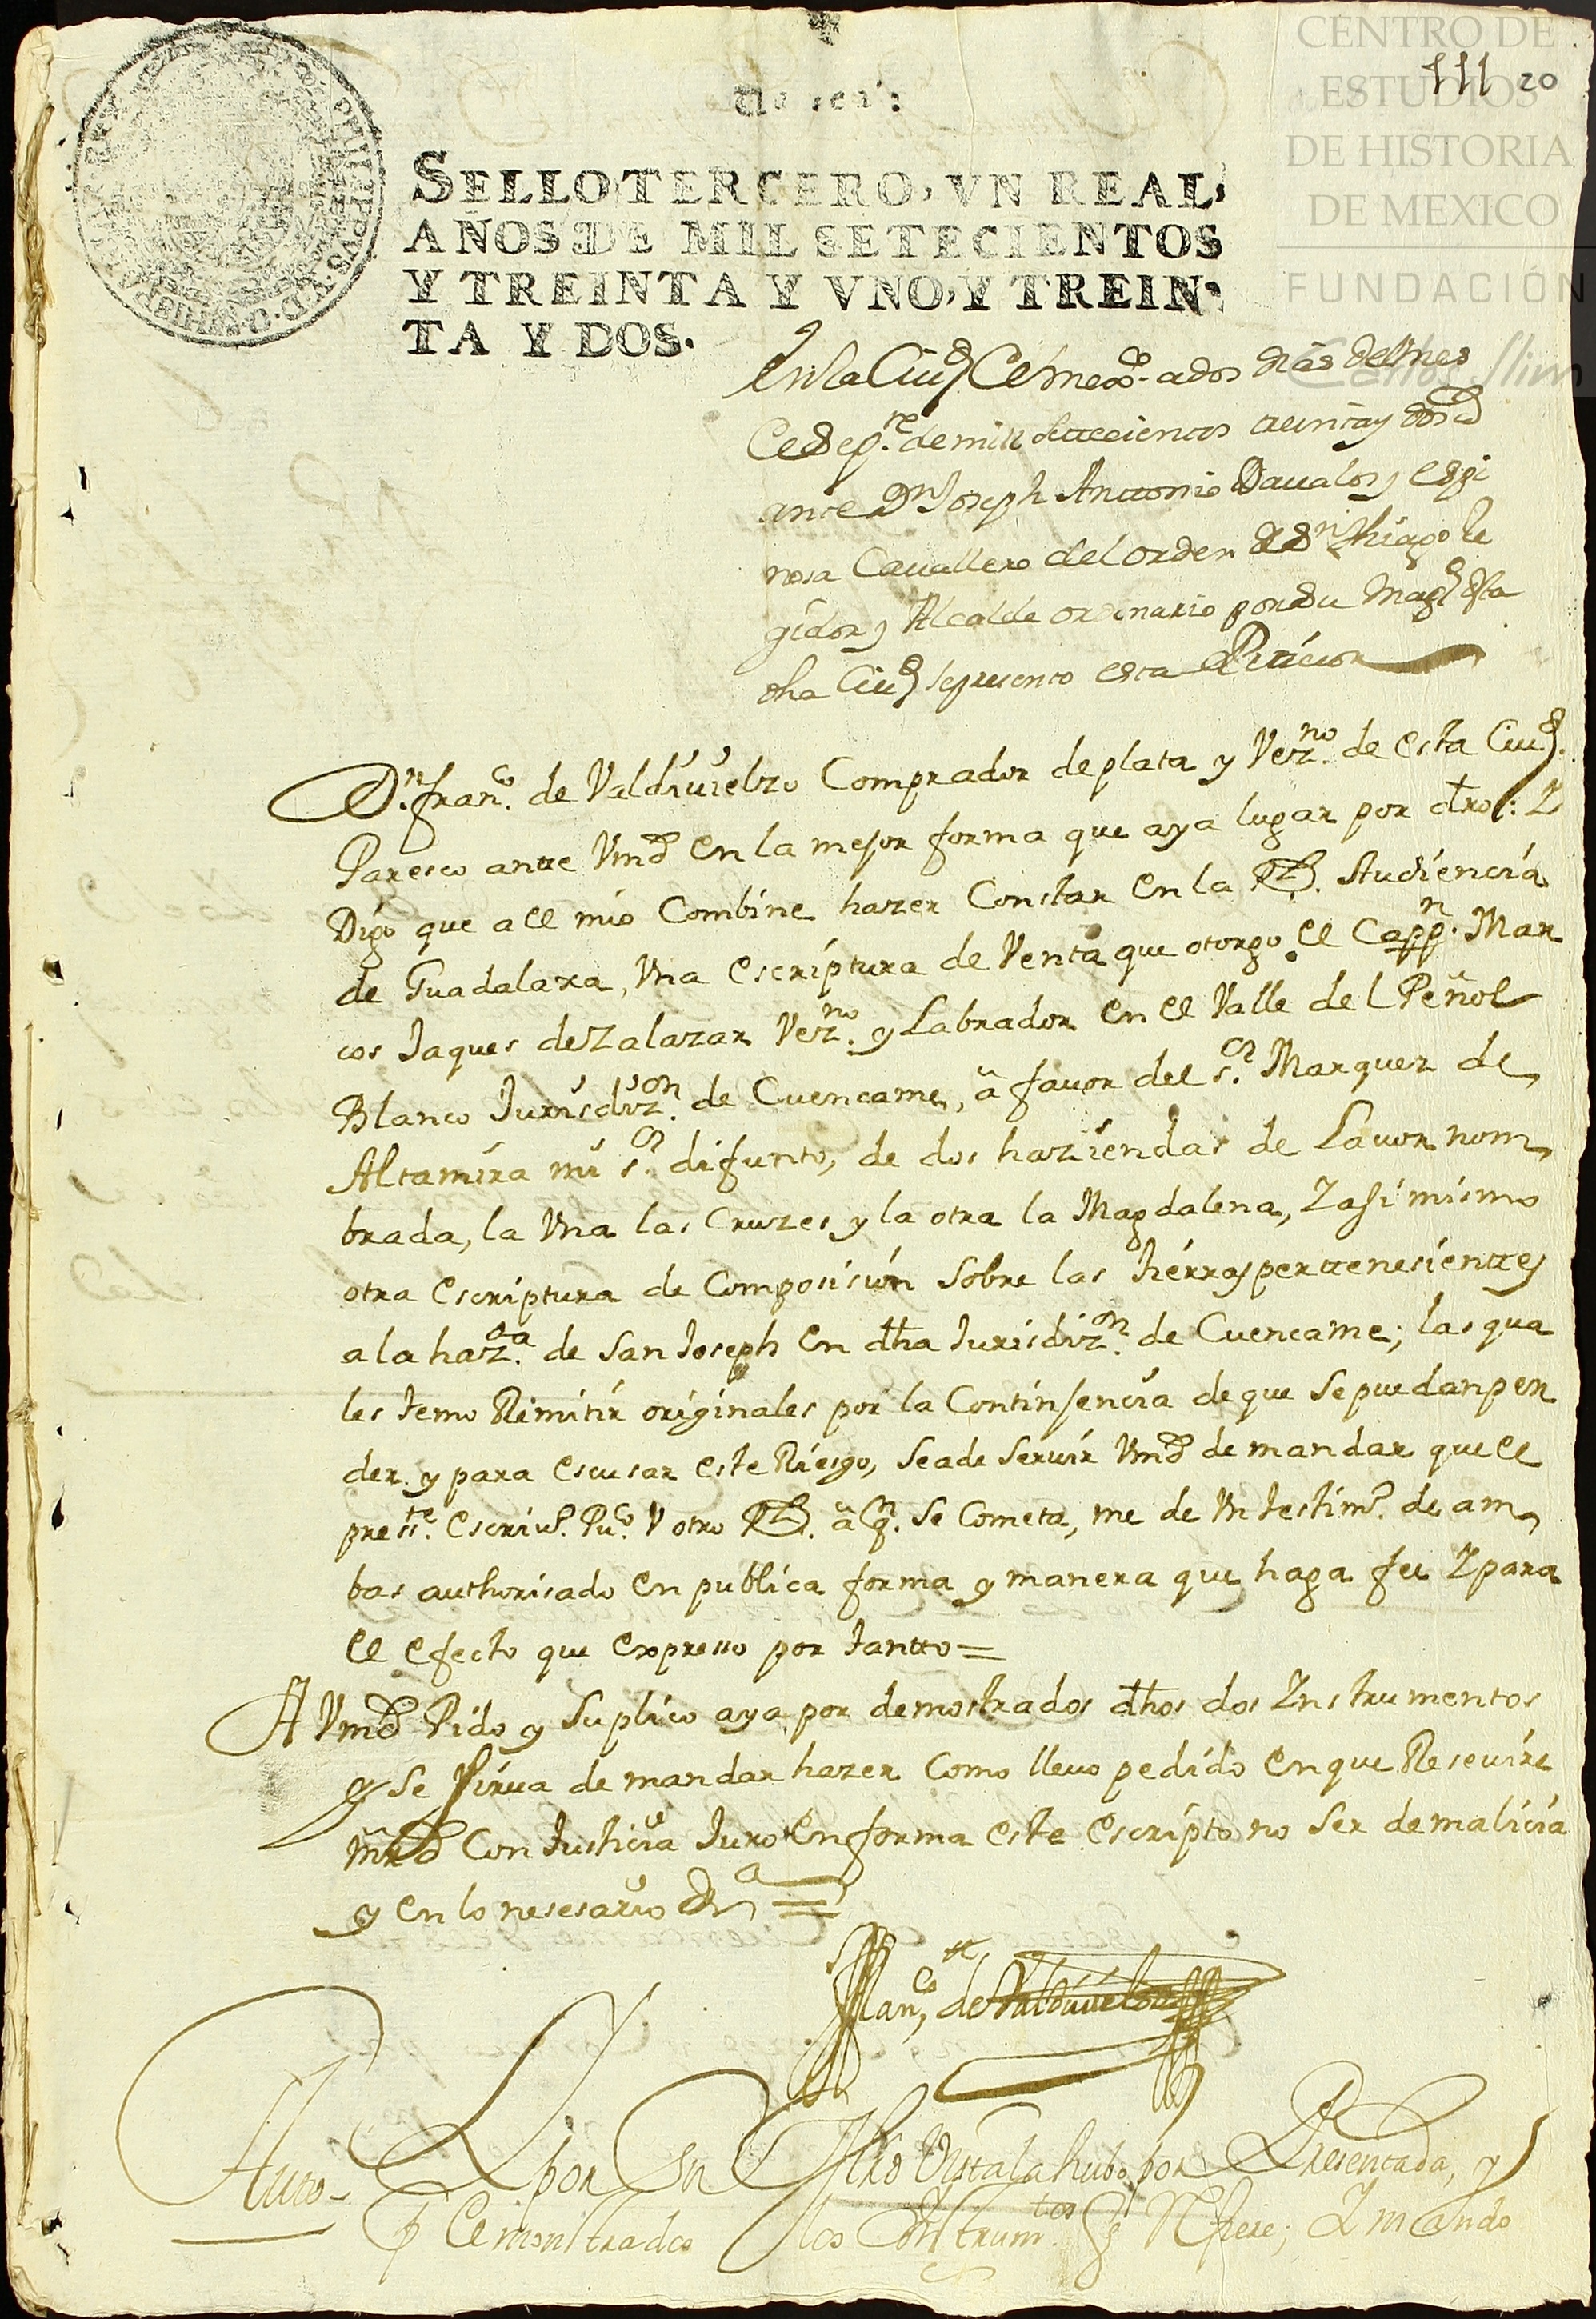 CENTRO DE
ESTUDIOS
DE HISTORIA
DE MEXICO
FUNDACIÓN
Carlos Slim
111 20
SELLO TERCERO, VN REAL,
AÑOS DE MIL SETECIENTOS
Y TREINTA Y VNO, Y TREIN-
TA Y DOS.
En la Ciud de mexco. a dos dias del mes
de sepre. de mill settecientos treinta y dos as
ante Dn Joseph Anttonio Daualos y espi
nosa Cauallero del orden de sn thiago Re
gidor y Alcalde ordinario por su magd desta
dha Ciud se presento esta Peticion
Dn. franco. de Valdiuielzo Comprador de plata y Vezno. de esta Ciud.
Paresco antte Vmd en la mejor forma que aya lugar por dro: Y
Digo que all mio Combine hazer Constar en la Rl. Audiencia
de Guadalaxa, Vna escriptura de Venta que otorgo el Cappn. Mar
cos Jaques de Zalazar Vezno. y Labrador en el Valle del Peñol
Blanco Jurisdizon. de Cuencame, â fauor del sr. Marquez de
Altamira mi sr. difunto, de dos haziendas de Lauor nom
brada, la Vna las Cruzes y la otra la Magdalena, Y asi mismo
otra escriptura de Composisiôn sobre las thierras perttenesienttes
a la hazda. de San Joseph en dha Jurisdizon. de Cuencame; las qua
les temo Rimitir originales por la Continsencia de que se puedan per
der. y para escusar este Riesgo, seade seruir Vmd de mandar que el
preste. escriuo. Puco. V otro Rl. â qn. se Cometa, me de Vn testimo. de am
bas authorisado en publica forma y manera que haga fee Y para
el efecto que expresso por tantto =
A Vmd Pido y suplico aya por demostrados dhos dos Ynstrumentos
y se sirua de mandar hazer Como lleuo pedido en que Reseuire
mrd Con Justicia Juro en forma este escripto no ser de malicia
y en lo nesesario Va =
Franco, de Valdiuielso
Auto- Y por su Mrd Vista la hubo por Presentada, y
p demonstrados los Ynstrumtos q Refiere; Y mando